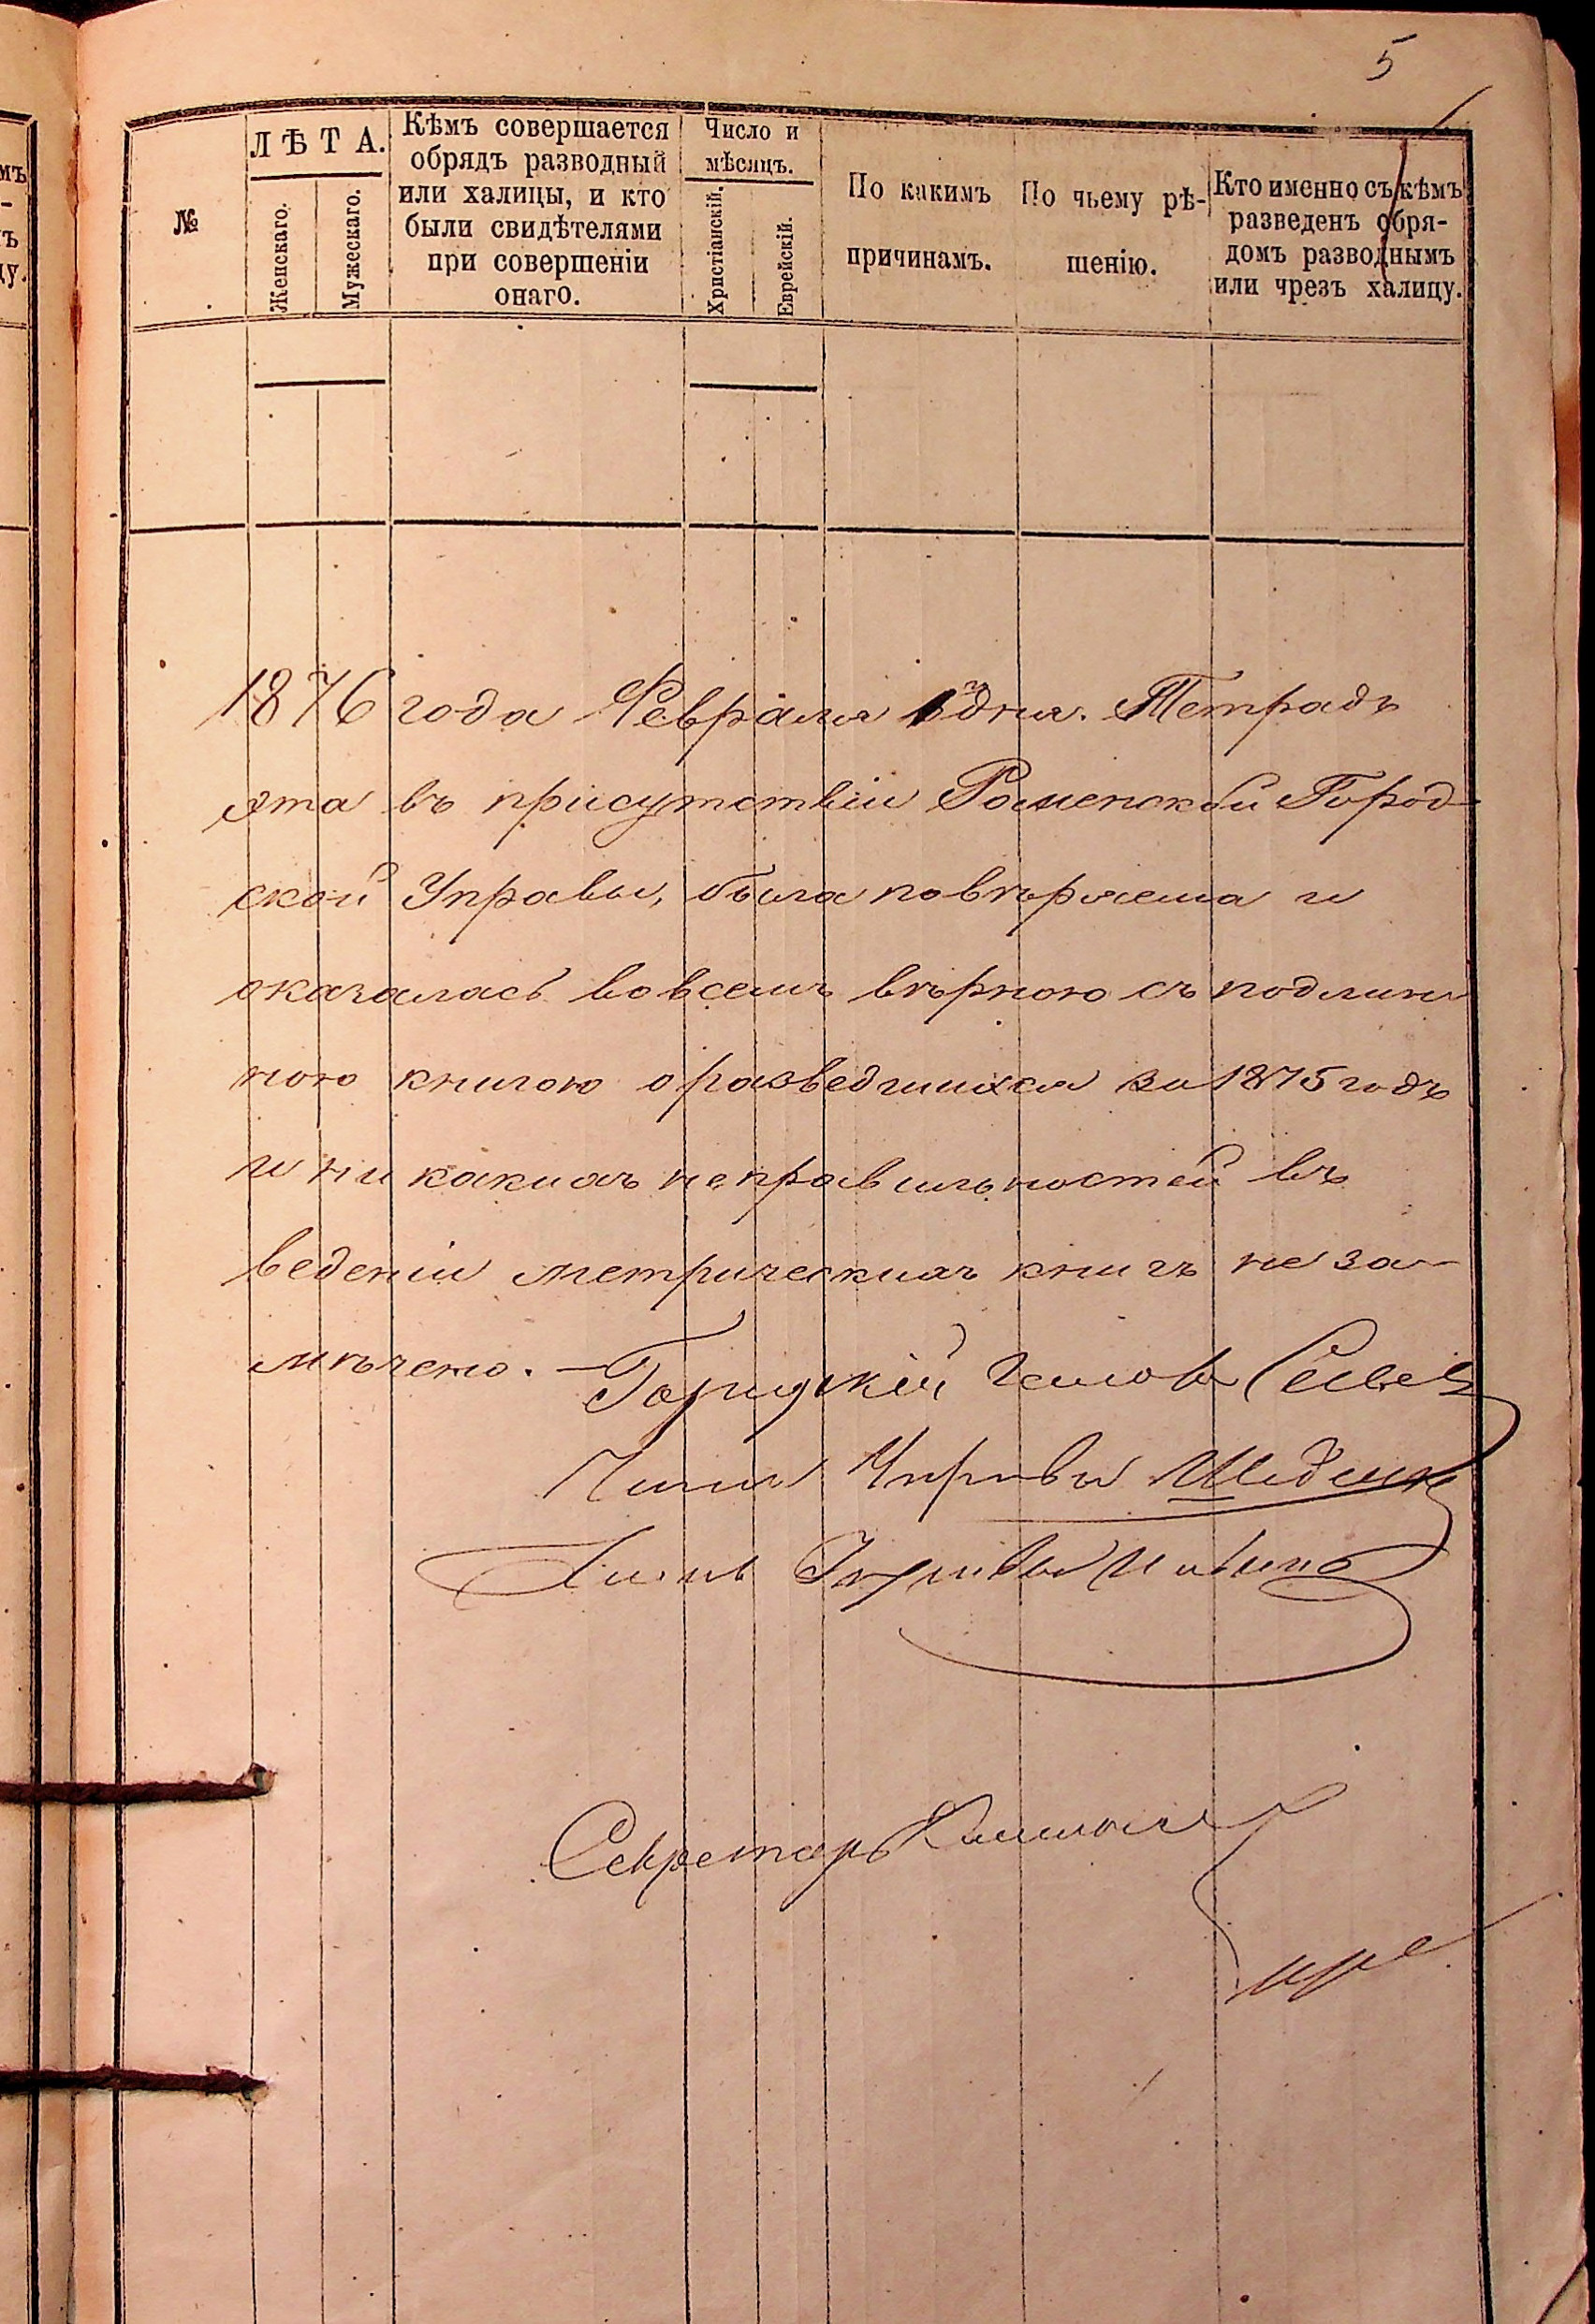 5
№
ЛѢТА.
Женскаго.
Мужескаго.
Кѣмъ совершается
обрядъ разводный
или халицы, и кто
были свидѣтелями
при совершеніи
онаго.
Число и
мѣсяцъ.
Христіанскій.
Еврейскій.
По какимъ
причинамъ.
По чьему рѣ-
шенію.
Кто именно съ кѣмъ
разведенъ обря-
домъ разводнымъ
или чрезъ халицу.
1876 года Февраля дня. Тетрадь
эта въ присутствіи Роменской Город-
ской Управы, была повѣряема и
оказалась вовсемъ вѣрною съ подлин
ною книгою о разведшихся за 1875 годъ
и ни какихъ неправильностей въ
веденіи метрическихъ книгъ не за-
мѣчено. — Городской Голова
Членъ Управы
Членъ Управы
Секретарь